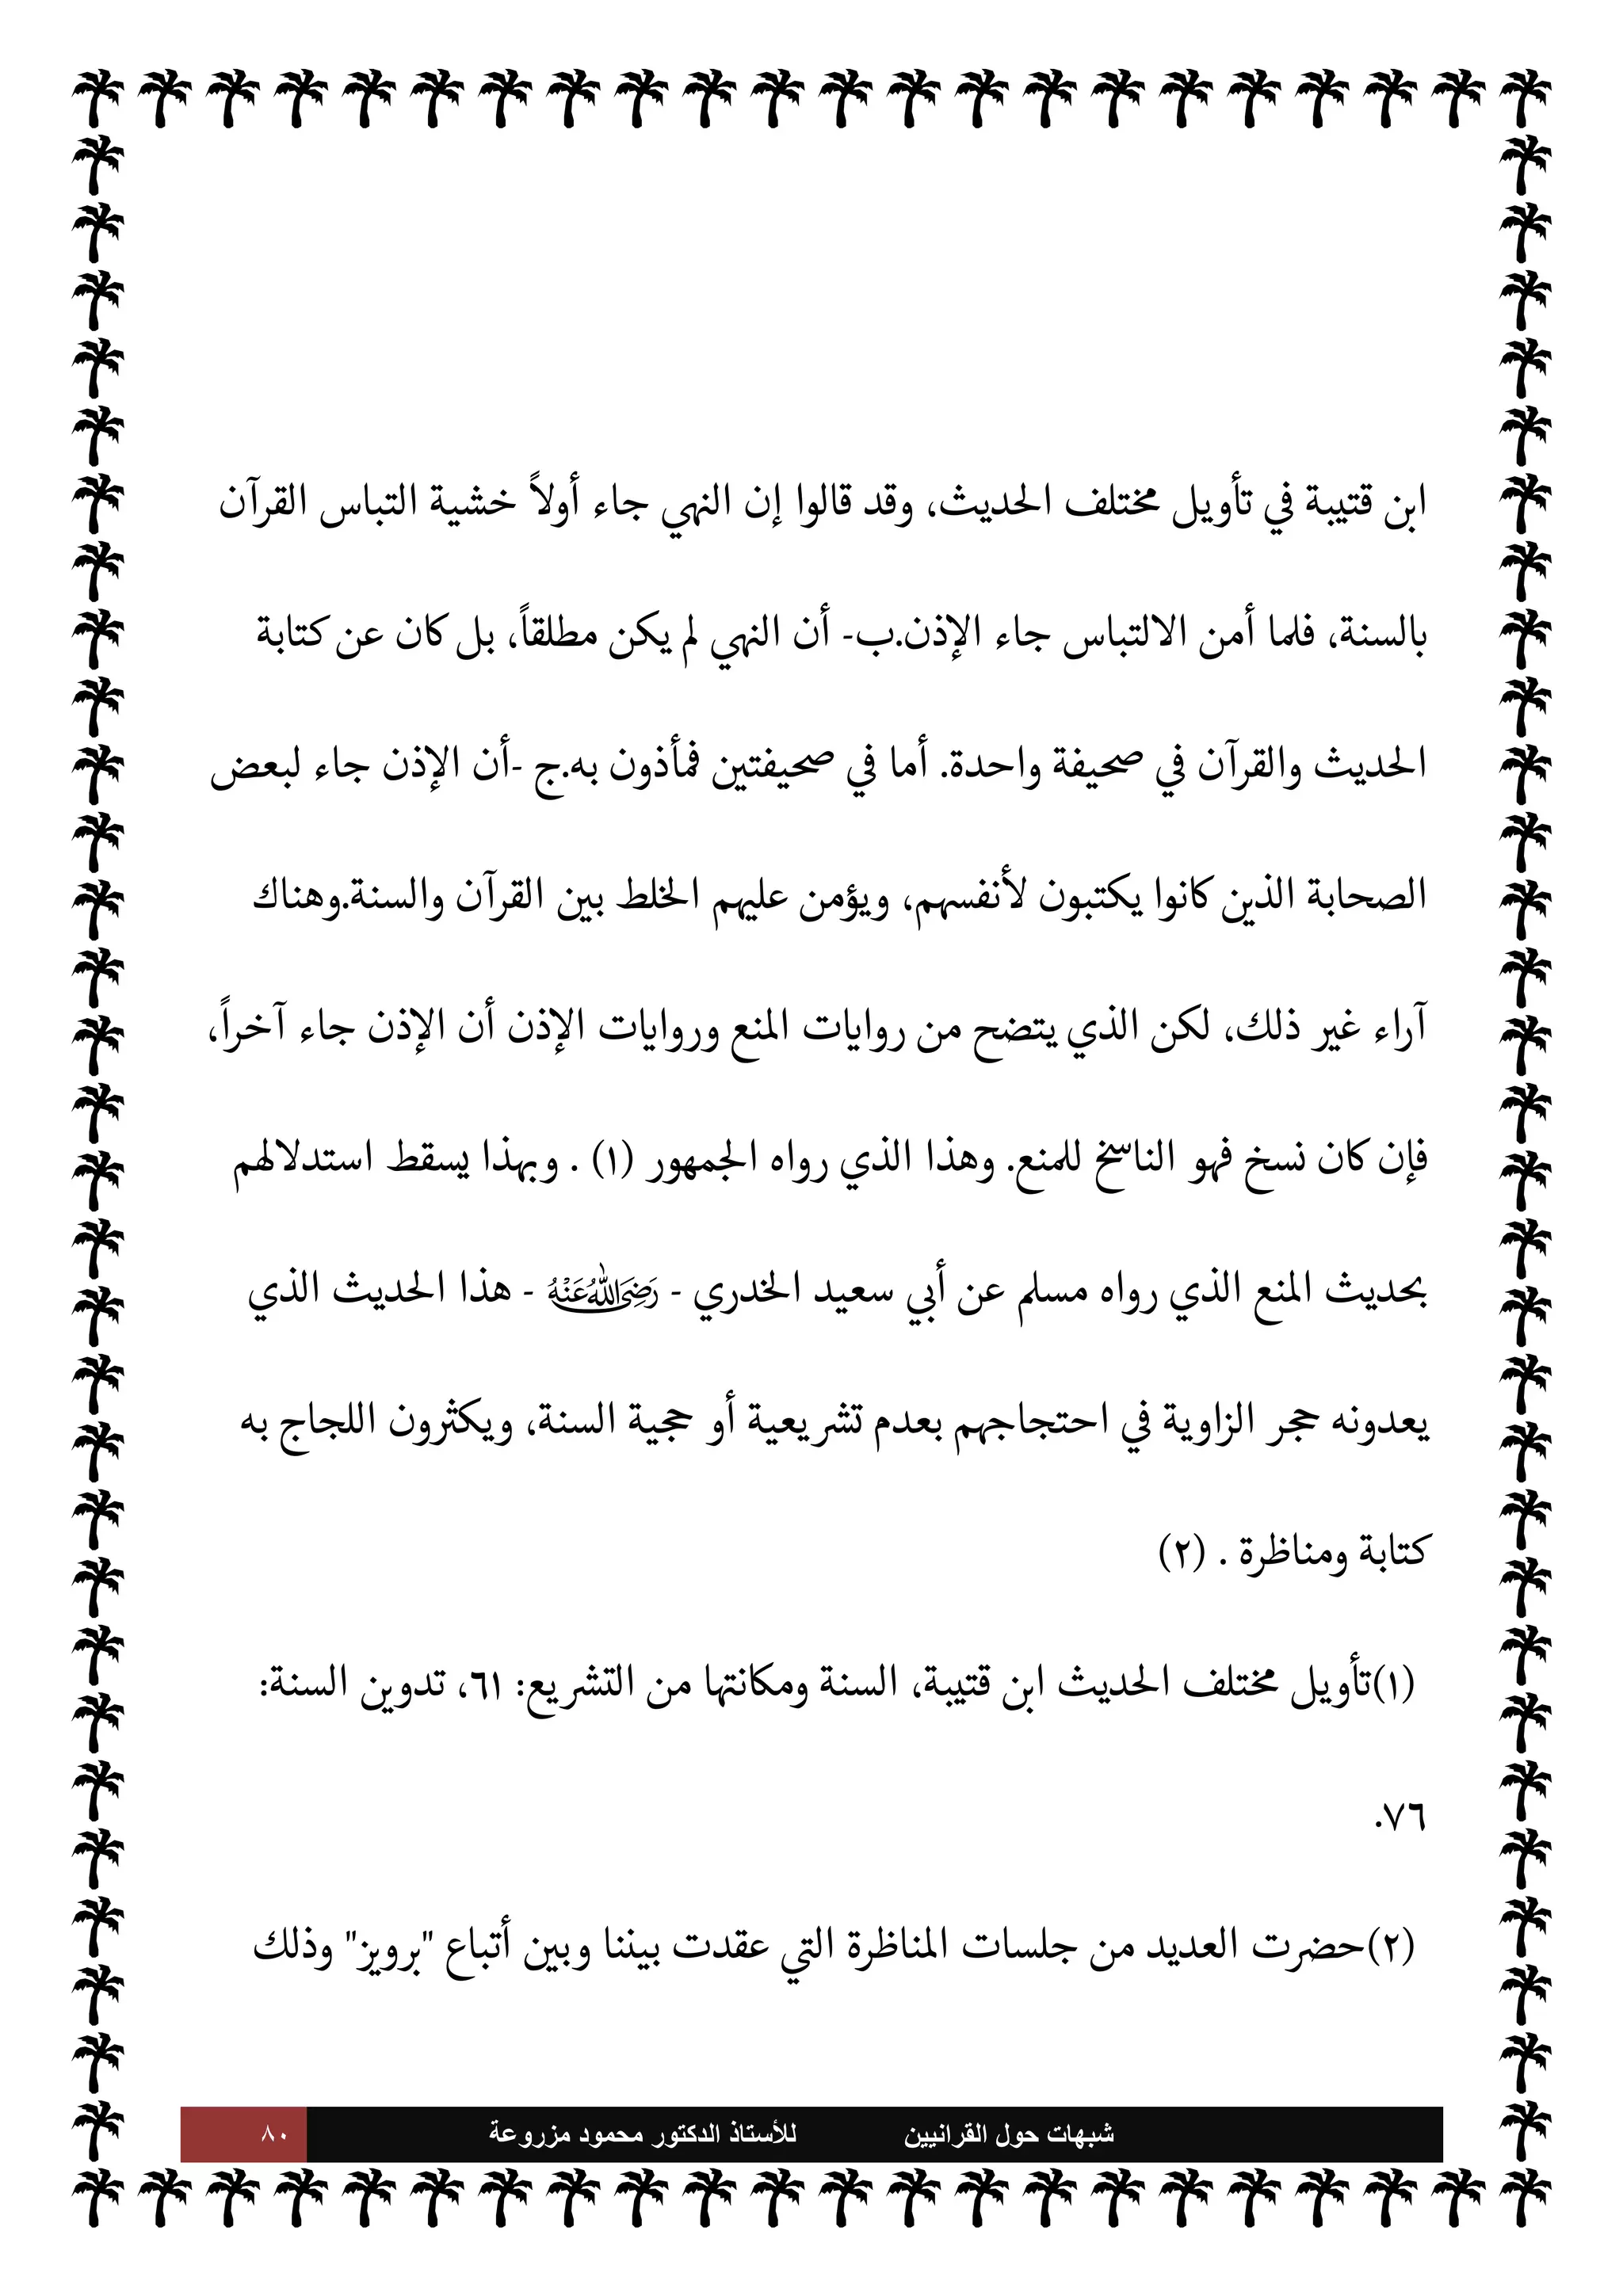 ابن قتيبة في تأويل مختلف الحديث، وقد قالوا إن النهي جاء أولاً خشية التباس القرآن
بالسنة، فلما أمن الالتباس جاء الإذن.ب- أن النهي لم يكن مطلقاً، بل كان عن كتابة
الحديث والقرآن في صحيفة واحدة. أما في صحيفتين فمأذون به.ج -أن الإذن جاء لبعض
الصحابة الذين كانوا يكتبون لأنفسهم، ويؤمن عليهم الخلط بين القرآن والسنة.وهناك
آراء غير ذلك، لكن الذي يتضح من روايات المنع وروايات الإذن أن الإذن جاء آخراً،
فإن كان نسخ فهو الناسخ للمنع. وهذا الذي رواه الجمهور (١) . وبهذا يسقط استدلالهم
بحديث المنع الذي رواه مسلم عن أبي سعيد الخدري - رَضِيَ اللهُ عَنْهُ - هذا الحديث الذي
يعدونه حجر الزاوية في احتجاجهم بعدم تشريعية أو حجية السنة، ويكثرون اللجاج به
كتابة ومناظرة . (٢)
(١)تأويل مختلف الحديث ابن قتيبة، السنة ومكانتها من التشريع: ٦١، تدوين السنة:
٧٦.
(٢)حضرت العديد من جلسات المناظرة التي عقدت بيننا وبين أتباع "برويز" وذلك
شبهات حول القرانيين للأستاذ الدكتور محمود مزروعة ٨٠